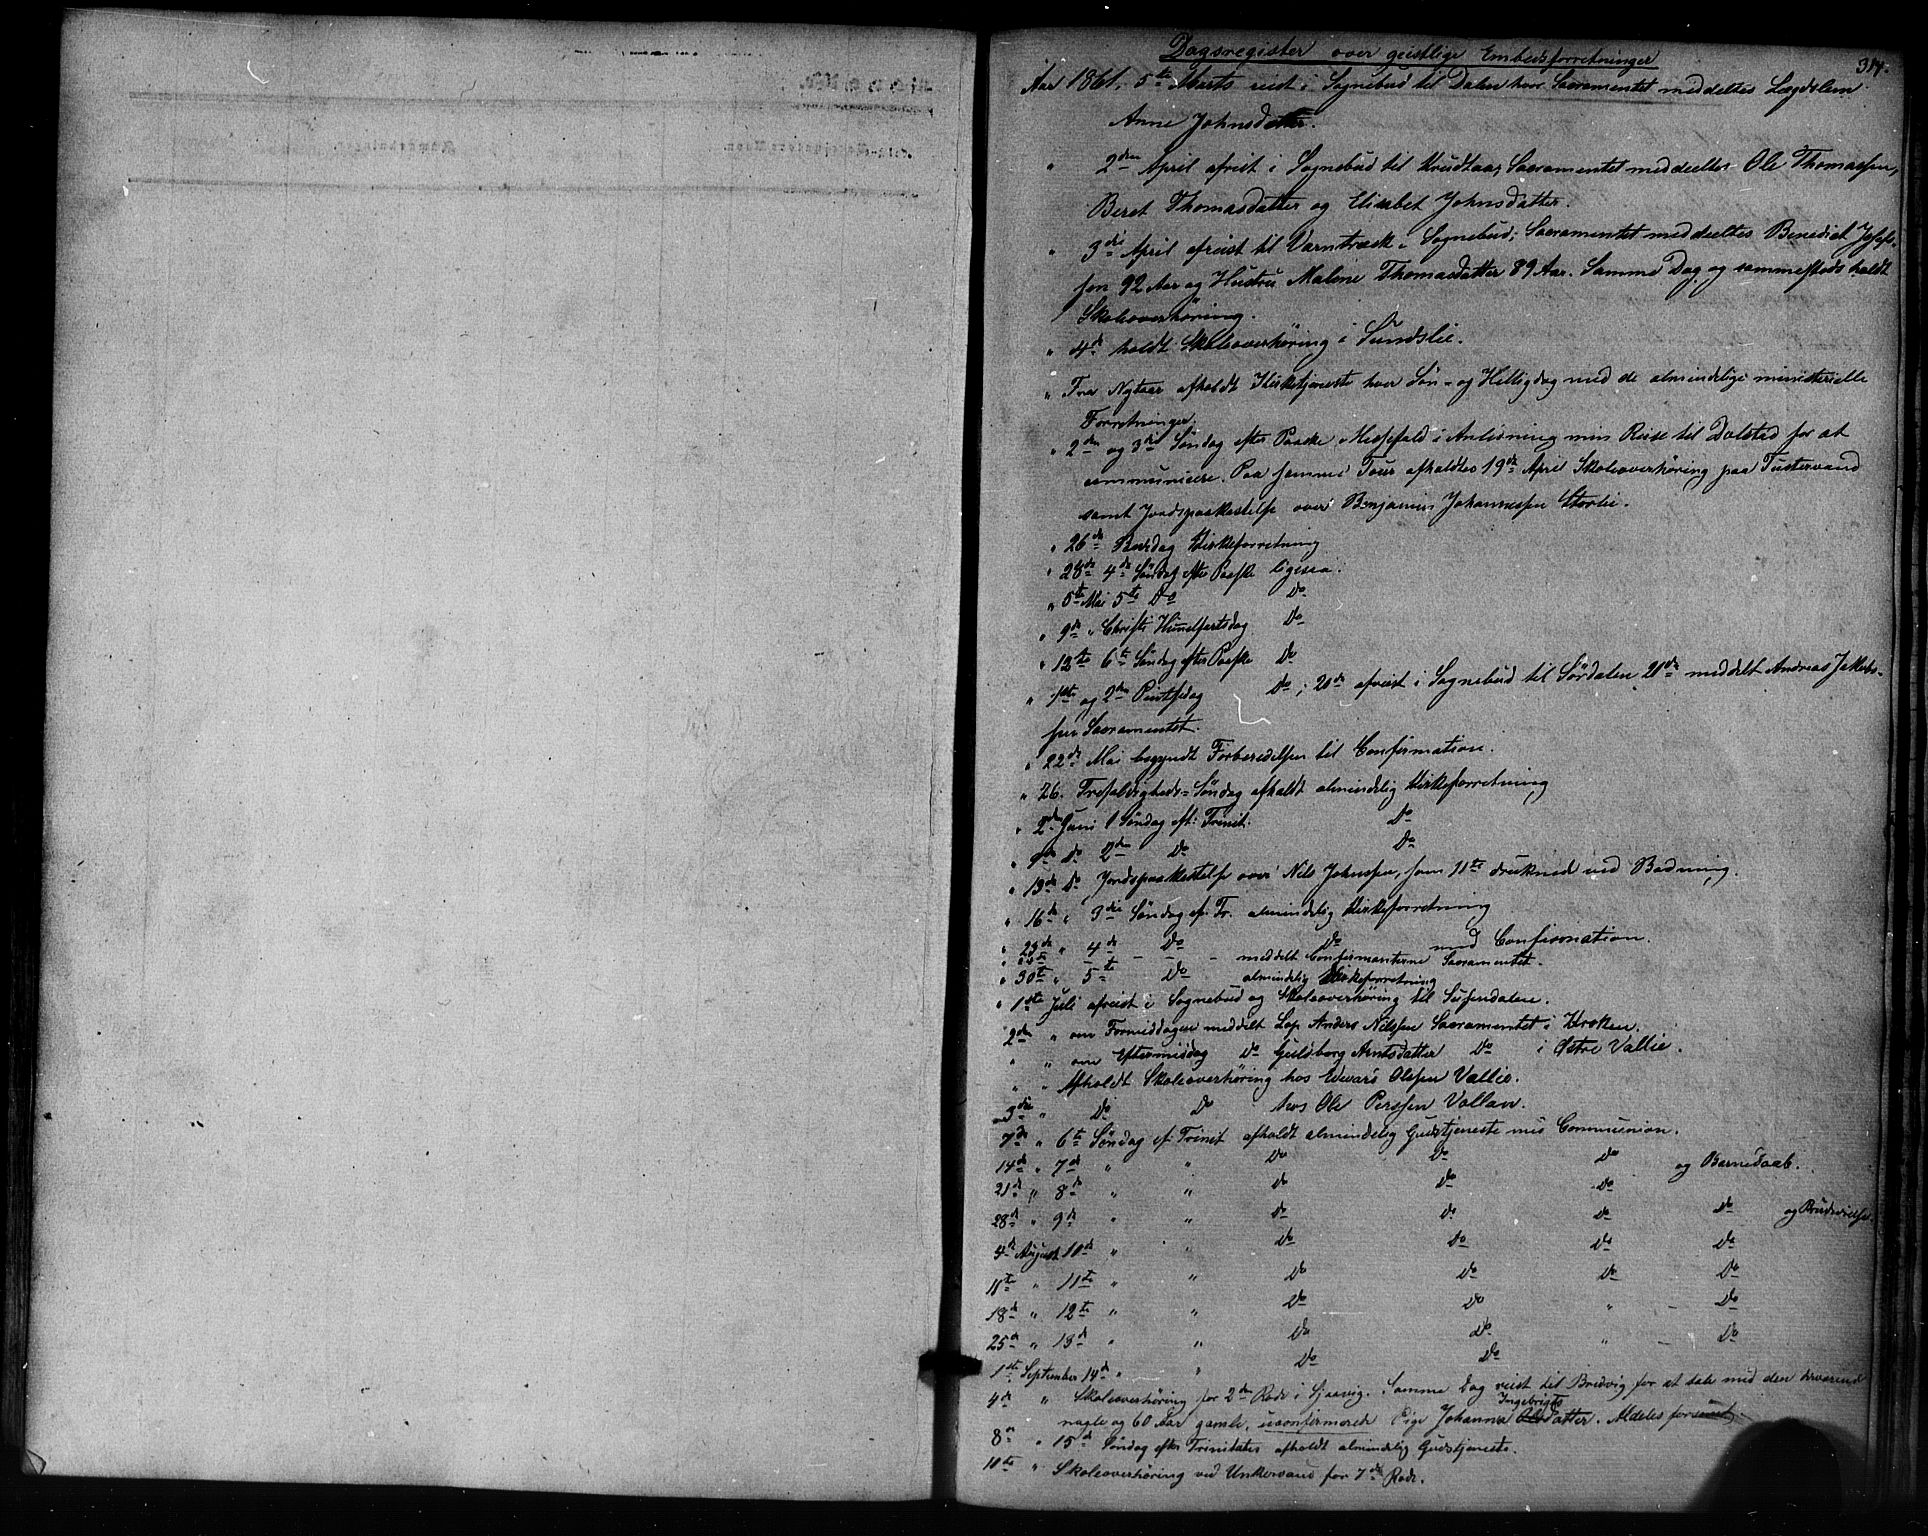 Dagsregister over geistlige Embedsforretninger
314.
Aar 1861, 5te Marts reist i Sognebud til Dalen hvor Sacramentet meddeltes Lægdslem
Anne Johnsdatter.
" 2den April afreist i Sognebud til Krudtaa, Sacramentet meddeeltes Ole Thomassen,
Beret Thomasdatter og Elisabet Johnsdatter.
" 3die April afreist til Varntræsk i Sognebud; Sacramentet meddeeltes Benedict Josefs-
sen 92 Aar og Hustru Malene Thomasdatter 89 Aar. Samme Dag og sammesteds holdt
Skoleoverhøring.
" 4de holdt Skoleoverhøring i Sundslie.
" Fra Nytaar afholdt Kirketjeneste hver Søn- og Helligdag med de almindelige ministerielle
Forretninger.
" 2den og 3die Søndag efter Paaske Messefald i Anledning min Reise til Dolstad for at
communicere. Paa samme Tour afholdtes 19de April Skoleoverhøring paa Tustervand
samt Jordspaakastelse over Benjamin Johannessen Storlie.
" 26de Bededag Kirkeforretning
" 28de 4de Søndag efter Paaske ligesaa.
" 5te Mai 5te Do Do
" 9de " Christi Himelfartsdag Do
" 12te 6te Søndag efter Paaske Do
" 1ste og 2den Pintsedag Do; 20de afreist i Sognebud til Sørdalen 21de meddelt Andreas Jakobs-
sen Sacramentet.
" 22de Mai begyndt Forberedelsen til Confirmation.
" 26. Trefoldigheds-Søndag afholdt almindelig Kirkeforretning
" 2den Juni 1 Søndag eft: Trinit. Do
" 9de Do 2den Do Do
" 13de Do Jordspaakastelse over Nils Johnsen, som 11te druknede ved Badning.
" 16de " 3die Søndag ef. Tr. almindelig Kirkeforretning
" 23de " 4de Do Do med Confirmation.
" 24de - - - meddelt Confirmanterne Sacramentet.
" 30te " 5te Do almindelig Kirkeforretning
" 1ste Juli afreist i Sognebud og Skoleoverhøring til Susendalen.
2den " om Formiddagen meddelt Lap Anders Nilssen Sacramentet i Kroken.
" " om Eftermiddag Do Guldborg Arntsdatter Do i Østre Vallie.
" " Afholdt Skoleoverhøring hos Edvard Olssen Vallie.
3die " Do Do hos Ole Perssen Vollan.
7de " 6te Søndag ef. Trinit afholdt almindelig Gudstjeneste med Communion.
14de " 7de " " Do Do Do og Barnedaab.
21de " 8de " " Do Do Do
28de " 9de " " Do Do Do Do og Brudevielse.
4de August 10de " " Do Do Do Do
11te " 11te " " Do Do Do Do
18de " 12te " " Do Do " - Do
25de " 13de " " Do Do " - Do
1ste September 14de " " Do Do
4de " Skoleoverhøring for 2den Rode i Sjaavig. Samme Dag reist til Bredvig for at tale med den
nagle og 60 Aar gamle, uconfirmerede Pige Johanna Ingebrigts datter. Aldeles forsømt.
8de " 15de Søndag efter Trinitatis afholdt almindelig Gudstjeneste.
10de " Skoleoverhøring ved Unkervand for 7de Rode.